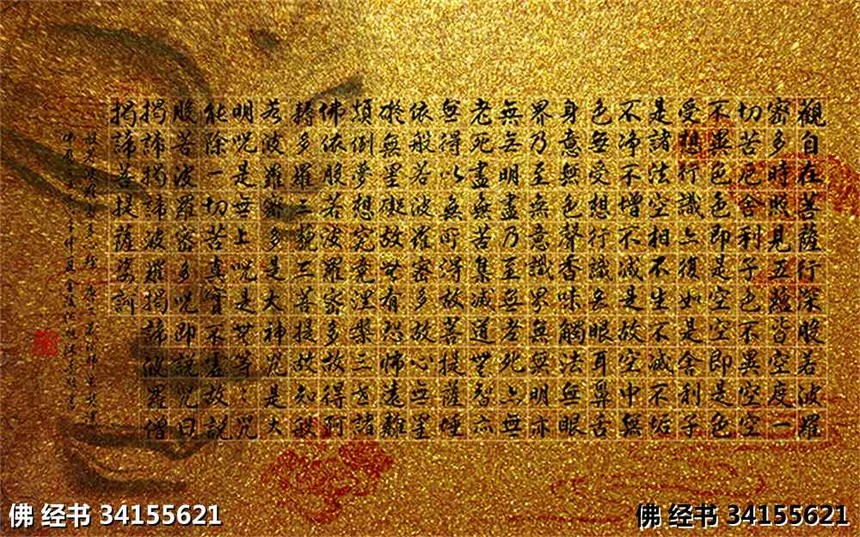 觀自在菩薩行深般若波羅
密多時照見五蘊皆空度一
切苦厄舍利子色不異空空
不異色色即是空空即是色
受想行識亦復如是舍利子
是諸法空相不生不滅不垢
不淨不增不減是故空中無
色無受想行識無眼耳鼻舌
身意無色聲香味觸法無眼
界乃至無意識界無無明亦
無無明盡乃至無老死亦無
老死盡無苦集滅道無智亦
無得以無所得故菩提薩埵
依般若波羅密多故心無罣
礙無罣礙故無有恐怖遠離
顛倒夢想究竟涅槃三世諸
佛依般若波羅密多故得阿
耨多羅三藐三菩提故知般
若波羅密多是大神咒是大
明咒是無上咒是無等等咒
能除一切苦真實不虛故說
般若波羅密多咒即說咒曰
揭諦揭諦波羅揭諦波羅僧
揭諦菩提薩婆訶
佛 经书 34155621
佛 经书 34155621